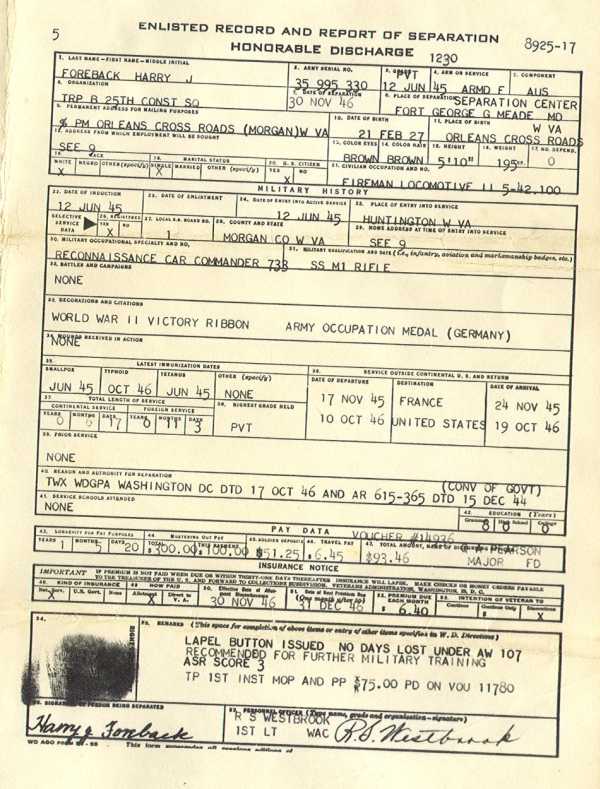 5
ENLISTED RECORD AND REPORT OF SEPARATION
HONORABLE DISCHARGE
1230
8925-17
1. LAST NAME - FIRST NAME - MIDDLE INITIAL
2. ARMY SERIAL NO.
3. GRADE
4. ARM OR SERVICE
5. COMPONENT
FOREBACK HARRY J
35 995 330
PVT
12 JUN 45
ARMD F
AUS
6. ORGANIZATION
7. DATE OF SEPARATION
8. PLACE OF SEPARATION
SEPARATION CENTER
TRP B 25TH CONST SQ
30 NOV 46
FORT GEORGE G MEADE MD
9. PERMANENT ADDRESS FOR MAILING PURPOSES
10. DATE OF BIRTH
11. PLACE OF BIRTH
W VA
% PM ORLEANS CROSS ROADS (MORGAN) W VA
21 FEB 27
ORLEANS CROSS ROADS
12. ADDRESS FROM WHICH EMPLOYMENT WILL BE SOUGHT
13. COLOR EYES
14. COLOR HAIR
15. HEIGHT
16. WEIGHT
17. NO. DEPEND.
SEE 9
BROWN
BROWN
5'10"
195
0
18. RACE
19. MARITAL STATUS
20. U.S. CITIZEN
21. CIVILIAN OCCUPATION AND NO.
WHITE NEGRO OTHER (specify) SINGLE MARRIED OTHER (specify) YES NO
X X X
FIREMAN LOCOMOTIVE II 5-42,100
MILITARY HISTORY
22. DATE OF INDUCTION
23. DATE OF ENLISTMENT
24. DATE OF ENTRY INTO ACTIVE SERVICE
25. PLACE OF ENTRY INTO SERVICE
12 JUN 45
12 JUN 45
HUNTINGTON W VA
SELECTIVE SERVICE DATA
26. REGISTERED
YES NO
27. LOCAL S.S. BOARD NO.
28. COUNTY AND STATE
29. HOME ADDRESS AT TIME OF ENTRY INTO SERVICE
X
1
MORGAN CO W VA
SEE 9
30. MILITARY OCCUPATIONAL SPECIALTY AND NO.
31. MILITARY QUALIFICATION AND DATE (i.e., infantry, aviation and marksmanship badges, etc.)
RECONNAISSANCE CAR COMMANDER 733
SS M1 RIFLE
32. BATTLES AND CAMPAIGNS
NONE
33. DECORATIONS AND CITATIONS
WORLD WAR II VICTORY RIBBON ARMY OCCUPATION MEDAL (GERMANY)
34. WOUNDS RECEIVED IN ACTION
NONE
35. LATEST IMMUNIZATION DATES
36. SERVICE OUTSIDE CONTINENTAL U.S. AND RETURN
SMALLPOX TYPHOID TETANUS OTHER (specify)
DATE OF DEPARTURE DESTINATION DATE OF ARRIVAL
JUN 45 OCT 46 JUN 45 NONE
17 NOV 45 FRANCE 24 NOV 45
10 OCT 46 UNITED STATES 19 OCT 46
37. TOTAL LENGTH OF SERVICE
38. HIGHEST GRADE HELD
CONTINENTAL SERVICE FOREIGN SERVICE
YEARS MONTHS DAYS YEARS MONTHS DAYS
0 6 17 0 11 3
PVT
39. PRIOR SERVICE
NONE
40. REASON AND AUTHORITY FOR SEPARATION
(CONV OF GOVT)
TWX WDGPA WASHINGTON DC DTD 17 OCT 46 AND AR 615-365 DTD 15 DEC 44
41. SERVICE SCHOOLS ATTENDED
42. EDUCATION (Years)
NONE
Grammar High School College
8 0 0
PAY DATA
VOUCHER #14936
43. LONGEVITY FOR PAY PURPOSES
44. MUSTERING OUT PAY
45. SOLDIER DEPOSITS
46. TRAVEL PAY
47. TOTAL AMOUNT, NAME OF DISBURSING OFFICER
YEARS MONTHS DAYS TOTAL THIS PAYMENT
1 5 20 $300.00 $100.00 $51.25 $6.45 $93.46
PEARSON
MAJOR FD
INSURANCE NOTICE
IMPORTANT IF PREMIUM IS NOT PAID WHEN DUE OR WITHIN THIRTY-ONE DAYS THEREAFTER, INSURANCE WILL LAPSE. MAKE CHECKS OR MONEY ORDERS PAYABLE
TO THE TREASURER OF THE U. S. AND FORWARD TO COLLECTIONS SUBDIVISION, VETERANS ADMINISTRATION, WASHINGTON, D. C.
48. KIND OF INSURANCE
49. HOW PAID
50. Effective Date of Allotment Discontinuance
51. Date of Next Premium Due (One month after 50)
52. PREMIUM DUE EACH MONTH
53. INTENTION OF VETERAN TO
Nat. Serv. U.S. Govt. None Allotment Direct to V. A.
Continue Continue Only Discontinue
X X
30 NOV 46
31 DEC 46
$ 6.40
X
54.
55. REMARKS (This space for completion of above items or entry of other items specified in W. D. Directives)
LAPEL BUTTON ISSUED NO DAYS LOST UNDER AW 107
RECOMMENDED FOR FURTHER MILITARY TRAINING
ASR SCORE 3
TP 1ST INST MOP AND PP $75.00 PD ON VOU 11780
56. SIGNATURE OF PERSON BEING SEPARATED
57. PERSONNEL OFFICER (Type name, grade and organization - signature)
Harry J Foreback
R S WESTBROOK
1ST LT WAC
R. S. Westbrook
WD AGO FORM
This form supersedes all previous editions of